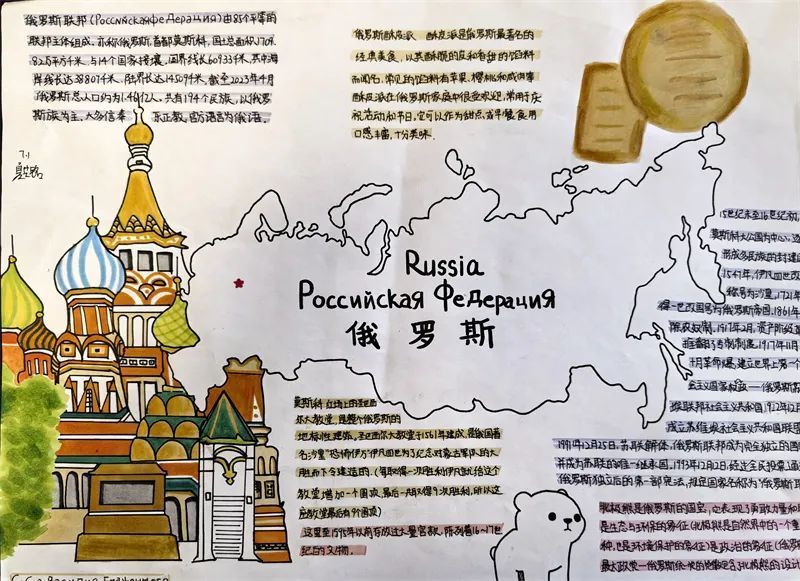 俄罗斯联邦(Российская Федерация)由85个平等的
联邦主体组成,亦称俄罗斯,首都莫斯科,国土总面积1709.
82万平方千米,与14个国家接壤,国界线长60933千米,其中海
岸线长达38807千米,陆界长达14509千米,截至2023年4月
俄罗斯总人口约为1.46亿人,共有194个民族,以俄罗
斯族为主,大多信奉 东正教,官方语言为俄语。
俄罗斯酥皮派 酥皮派是俄罗斯最著名的
经典美食,以其酥脆的皮和香甜的馅料
而闻名,常见的馅料有苹果、樱桃和
酥皮派在俄罗斯家庭中很受欢迎,常用于庆
祝活动和节日,它可以作为甜点,或早餐食用
口感丰富,十分美味.
7.1
Russia
Российская Федерация
俄 罗 斯
15世纪末至16世纪初,
莫斯科大公国为中心,
形成多民族的封建国
1547年,伊凡四世改
称号为沙皇,1721年
得一世改国号为俄罗斯帝国,1861年
废农奴制.1917年2月,资产阶级
推翻了专制制度,1917年11月
十月革命爆,建立世界上第一个
会主义国家政权——俄罗斯苏
维联邦社会主义共和国,1922年12月
成立苏维埃社会主义共和国联盟
1991年12月25日,苏联解体,俄罗斯联邦成为完全独立的国
并成为苏联的唯一继承国,1993年12月12日,经过全民投票通
俄罗斯独立后的第一部宪法,规定国家名称为"俄罗斯联
莫斯科红场上的圣巴西
尔大教堂,是整个俄罗斯的
地标性建筑,圣巴西尔大教堂于1561年建成,俄国著
名沙皇"恐怖伊万"伊凡四世为了纪念对蒙古军队的大
胜而下令建造的,(每取得一次胜利伊凡就给这个
教堂增加一个圆顶,最后一共取得9次胜利,所以这
座教堂最后有9个圆顶)
这里至1595年以前存放过大量宫教,陈列着16~17世
纪的文物.
北极熊是俄罗斯的国宝,它表现了勇敢力量和
是生态与环保的象征(北极熊是自然界中的一个重
种,也是环境保护的象征)是政治的象征(俄
最大政党——俄罗斯统一党的